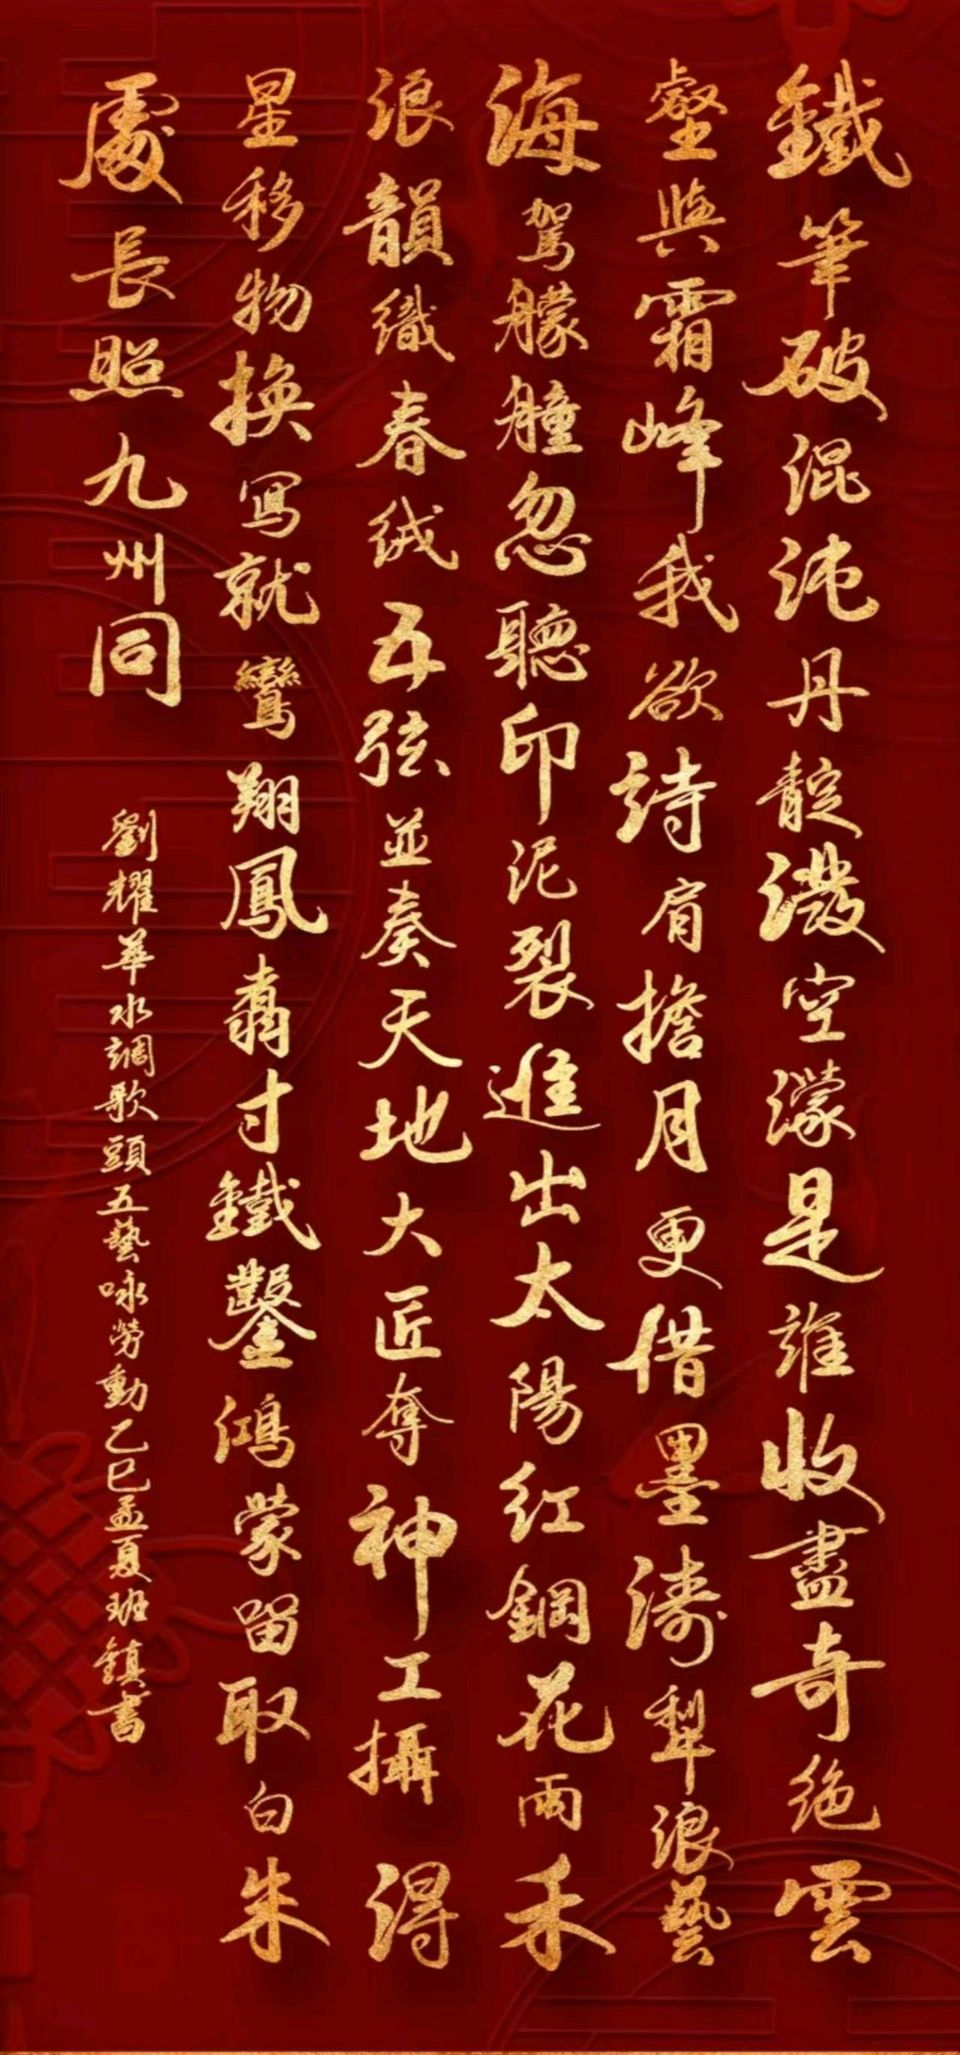 鐵筆破混沌丹靛潑空濛是誰收盡奇絕雲
壑與霜峰我欲詩肩擔月更借墨濤犁浪藝
海駕艨艟忽聽印泥裂進出太陽紅鋼花雨禾
浪韻織春絨五弦並奏天地大匠奪神工攝得
星移物換寫就鸞翔鳳翥寸鐵鑿鴻蒙留取白朱
處長照九州同
劉耀華水調歌頭五藝咏勞動乙巳孟夏班鎮書